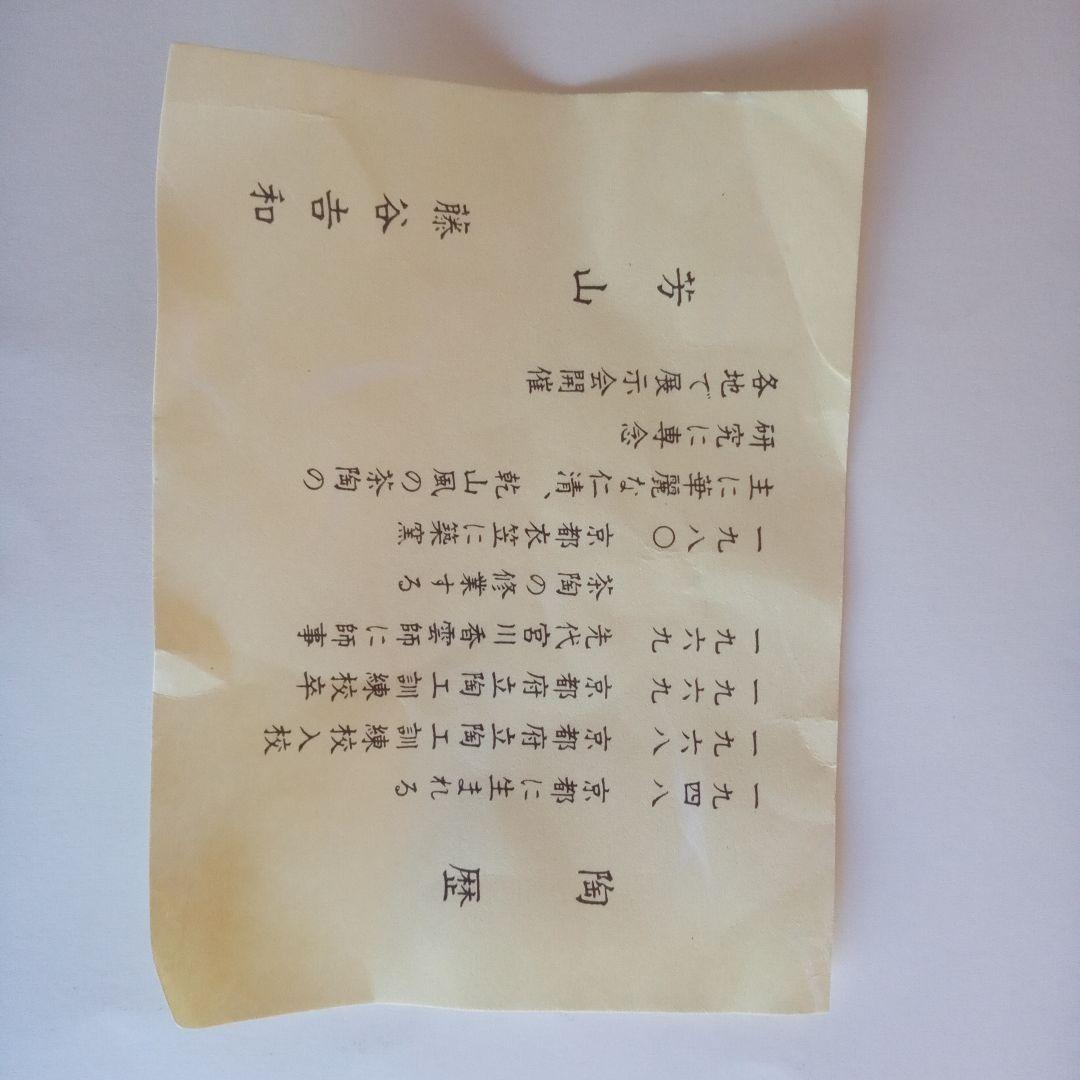 陶歴
一九四八 京都に生まれる
一九六八 京都府立陶工訓練校入校
一九六九 京都府立陶工訓練校卒
一九六九 先代宮川香雲師に師事
茶陶の修業する
一九八〇 京都衣笠に築窯
主に華麗な仁清、乾山風の茶陶の
研究に専念
各地で展示会開催
芳山
藤谷吉和